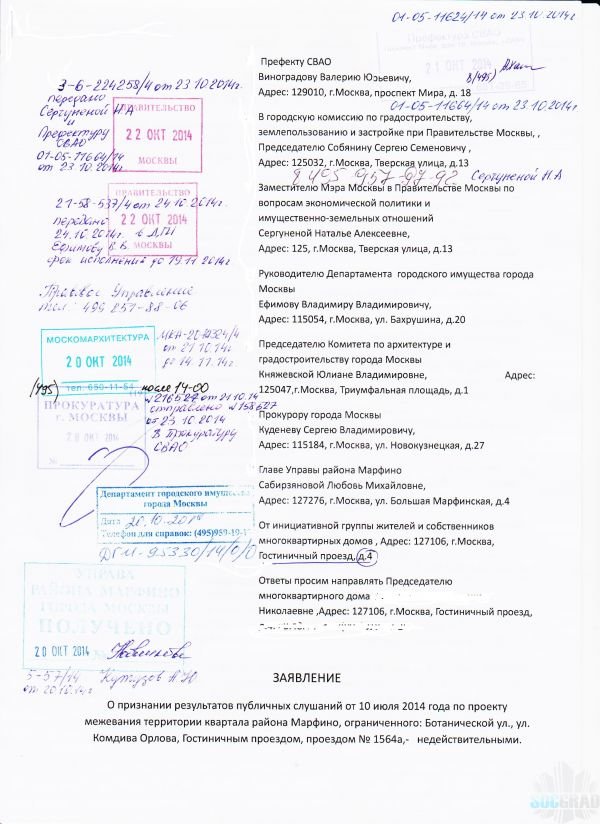 01-05-11624/14 от 23.10.2014г.
Префектура СВАО
21 ОКТ 2014
Префекту СВАО
Виноградову Валерию Юрьевичу,
Адрес: 129010, г.Москва, проспект Мира, д. 18
8(495)
01-05-11664/14 от 23.10.2014г.
В городскую комиссию по градостроительству,
землепользованию и застройке при Правительстве Москвы, ,
Председателю Собянину Сергею Семеновичу ,
Адрес: 125032, г.Москва, Тверская улица, д.13
8 495 957-97-92 Сергуненой Н А
Заместителю Мэра Москвы в Правительстве Москвы по
вопросам экономической политики и
имущественно-земельных отношений
Сергуненой Наталье Алексеевне,
Адрес: 125, г.Москва, Тверская улица, д.13
Руководителю Департамента городского имущества города
Москвы
Ефимову Владимиру Владимировичу,
Адрес: 115054, г.Москва, ул. Бахрушина, д.20
Председателю Комитета по архитектуре и
градостроительству города Москвы
Княжевской Юлиане Владимировне, Адрес:
125047,г.Москва, Триумфальная площадь, д.1
Прокурору города Москвы
Куденеву Сергею Владимировичу,
Адрес: 115184, г.Москва, ул. Новокузнецкая, д.27
Главе Управы района Марфино
Сабирзяновой Любовь Михайловне,
Адрес: 127276, г.Москва, ул. Большая Марфинская, д.4
От инициативной группы жителей и собственников
многоквартирных домов , Адрес: 127106, г.Москва,
Гостиничный проезд, д.4
Ответы просим направлять Председателю
многоквартирного дома
Николаевне ,Адрес: 127106, г.Москва, Гостиничный проезд,
3-6-224258/4 от 23.10.2014г.
передано
Сергуненой Н.А
и
Префектуру
СВАО
01-05-11664/14
от 23.10.2014г.
ПРАВИТЕЛЬСТВО
22 ОКТ 2014
МОСКВЫ
ПРАВИТЕЛЬСТВО
22 ОКТ 2014
МОСКВЫ
21-58-537/4 от 24.10.2014г.
передано
24.10.2014г. в ДГИ
Ефимову В.В.
срок исполнения до 19.11.2014г.
Правовое Управление
тел. 499 251-88-06
МОСКОМАРХИТЕКТУРА
20 ОКТ 2014
тел. 650-11-54
(495) после 14-00
от 21.10.14г
до 14.11.14г.
ПРОКУРАТУРА
г. МОСКВЫ
20 ОКТ 2014
№
№216527 от 21.10.14
отправлено №158627
от 23.10.2014
В прокуратуру
СВАО
Департамент городского имущества
города Москвы
Дата 20.10.2014
Телефон для справок: (495)959-19-
ДГИ-95330/14/0/0
УПРАВА
РАЙОНА МАРФИНО
ГОРОДА МОСКВЫ
ПОЛУЧЕНО
20 ОКТ 2014
5-57/14
от 20.10.14г
ЗАЯВЛЕНИЕ
О признании результатов публичных слушаний от 10 июля 2014 года по проекту
межевания территории квартала района Марфино, ограниченного: Ботанической ул., ул.
Комдива Орлова, Гостиничным проездом, проездом № 1564а,- недействительными.
SOCGRAD